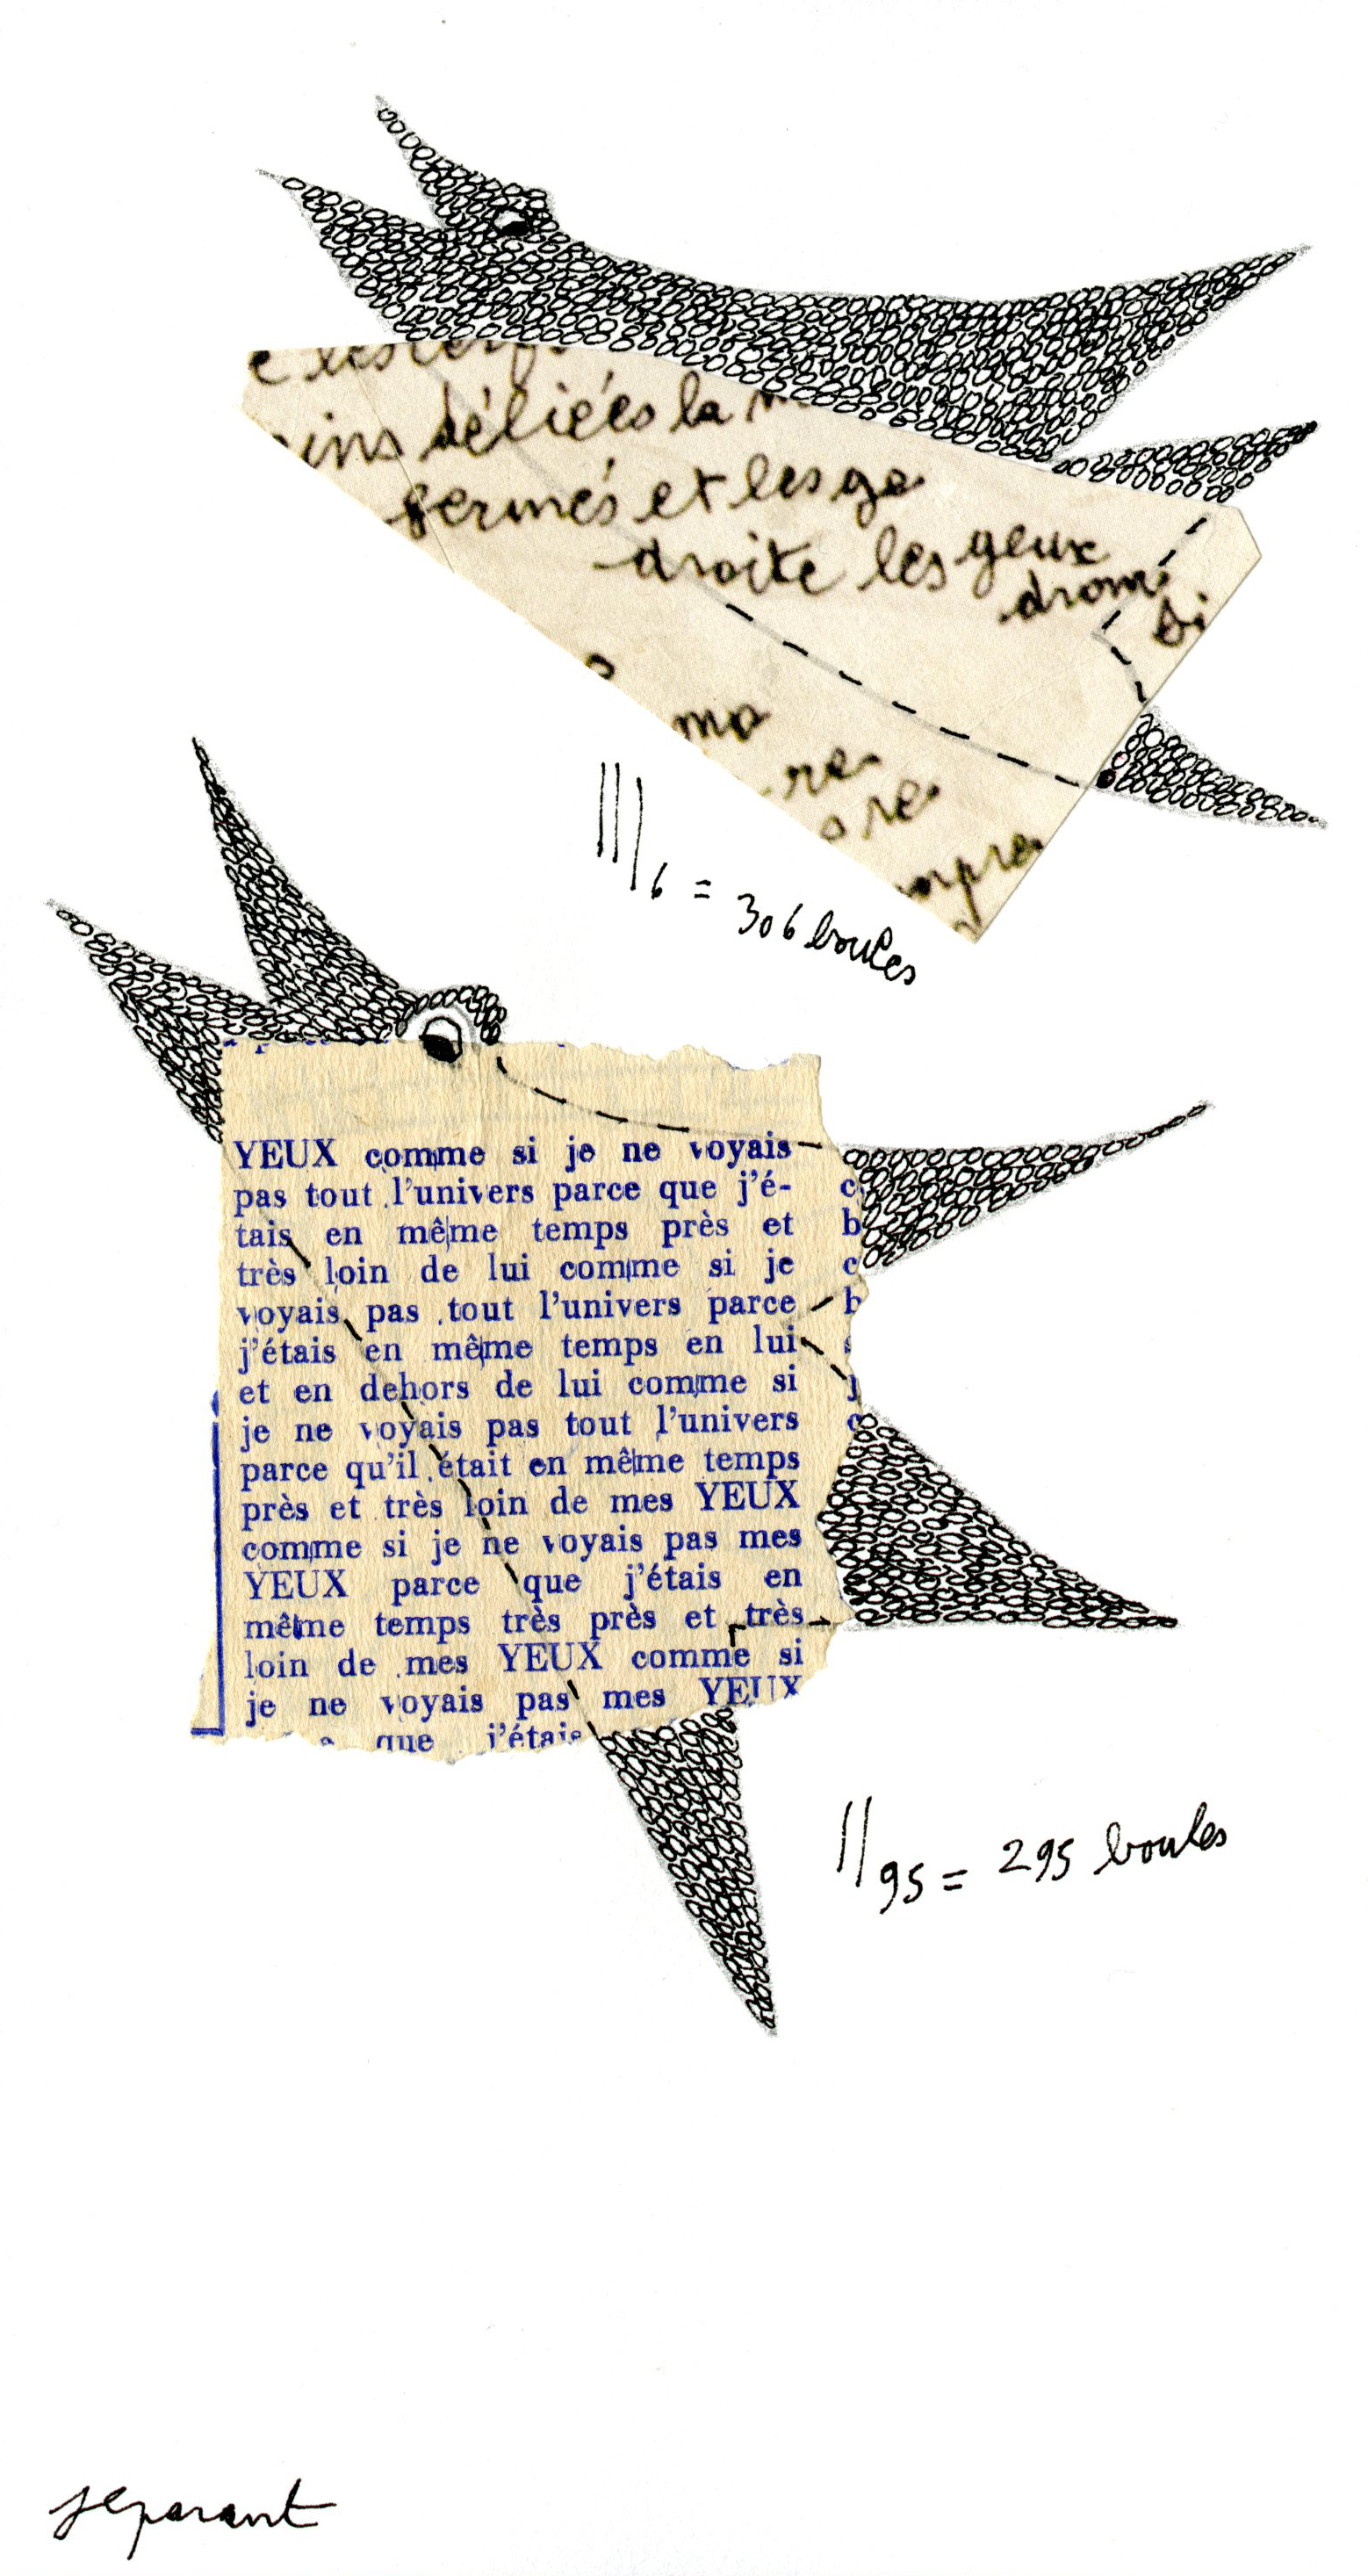 déliées la
fermés et les
droite les yeux
mo
re
re
III6 = 306 boules
YEUX comme si je ne voyais
pas tout l'univers parce que j'é-
tais en même temps près et
très loin de lui comme si je
voyais pas tout l'univers parce
j'étais en même temps en lui
et en dehors de lui comme si
je ne voyais pas tout l'univers
parce qu'il était en même temps
près et très loin de mes YEUX
comme si je ne voyais pas mes
YEUX parce que j'étais en
même temps très près et très
loin de mes YEUX comme si
je ne voyais pas mes YEUX
que j'étais
c
b
c
b
s
j
c
II95 = 295 boules
jlparant